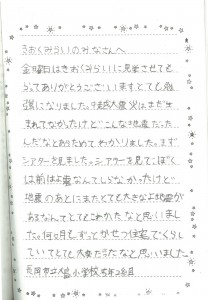 きおくみらいのみなさんへ
金曜日はきおくみらいに見学させても
らってありがとうございますとても勉
強になりました。中越大震災はまだ生
まれてなかったけどこんな地震だった
んだなとあらためてわかりました。まず
シアターを見ました。シアターを見てぼく
は前しん震なんてしらなかったけど
地震のあとにまたとても大きなよ地震が
あるなんてとてもこわかなと思いまし
た。何ヶ月もずっとかせつ住宅でくらし
ていてとても大変だなと思いました
長岡市立 小学校5年2組